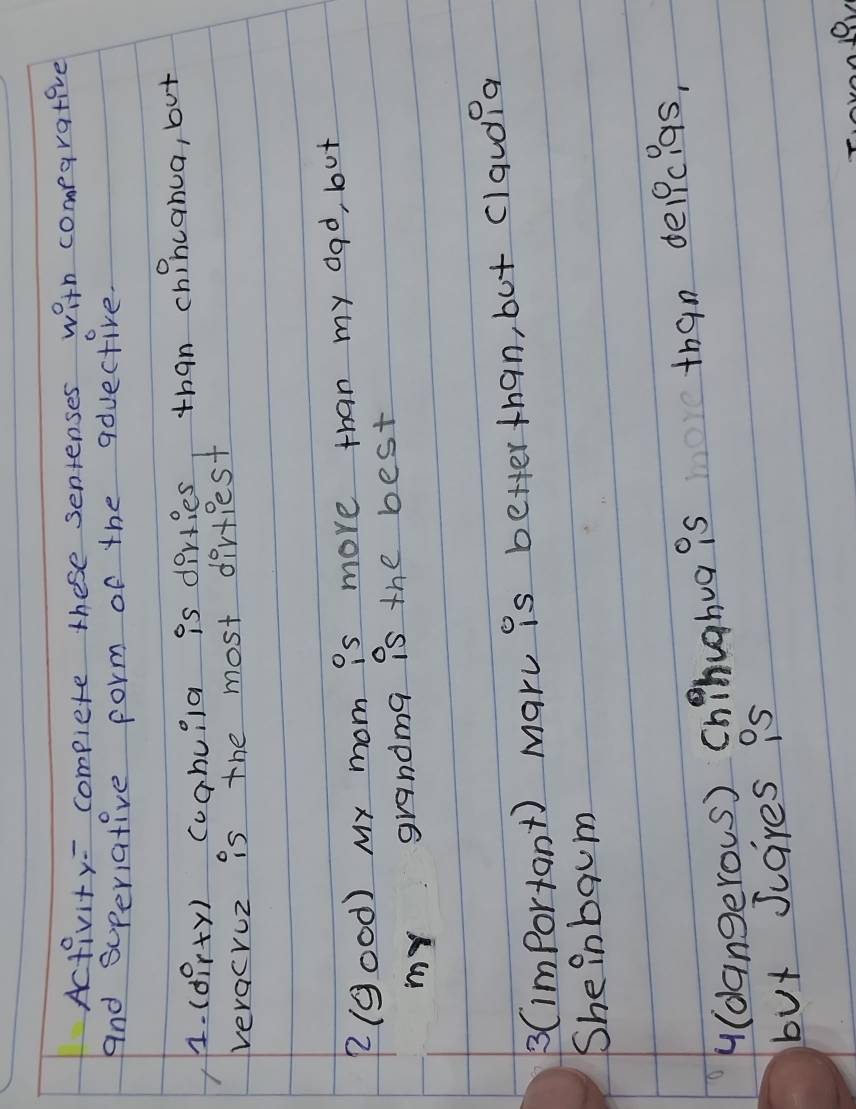 Activity- complete these sentenses with comparative
and superlative form of the advective.
1.(dirty) cuahuila is dirties than chihuahua, but
veracruz is the most dirtiest
2 (good) My mom is more than my dad, but
my grandma is the best
3(important) Maru is better than, but Claudia
Sheinbaum
4(dangerous) Chihuahua is more than delicias,
but Juáres is